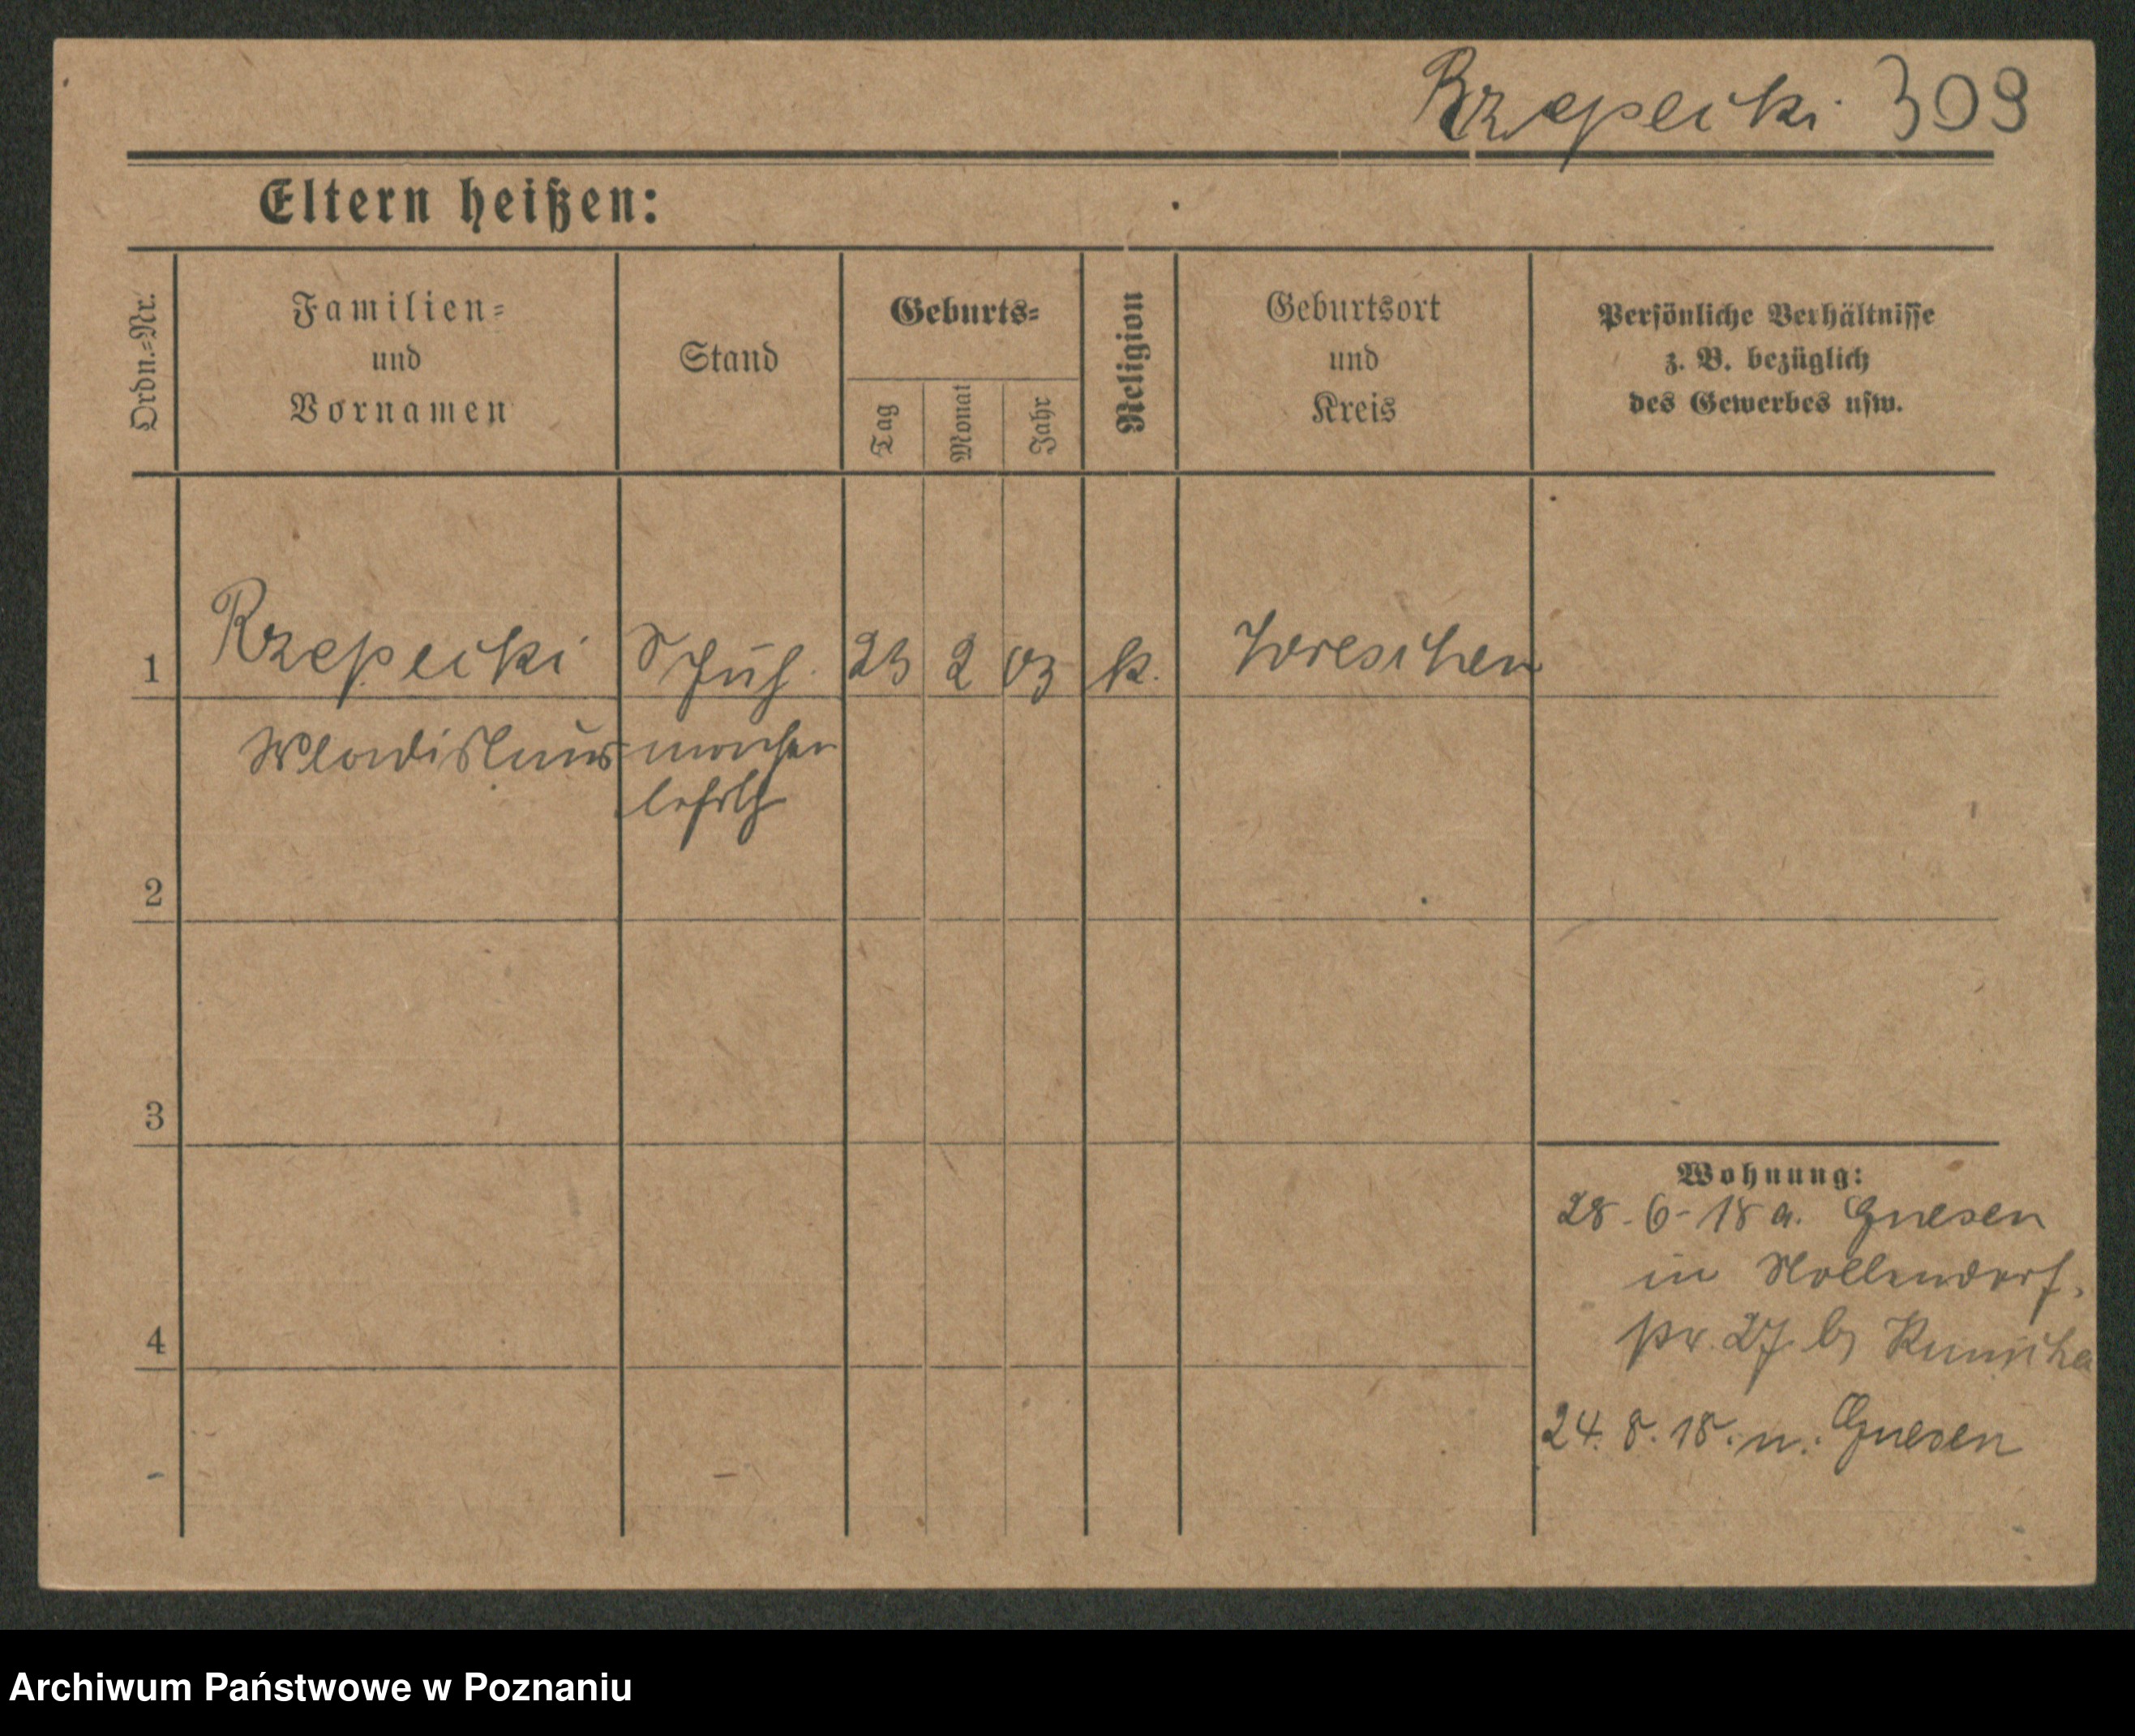 Rzepecki 309
Eltern heißen:
Ordn.=Nr.
Familien=
und
Vornamen
Stand
Geburts=
Tag
Monat
Jahr
Religion
Geburtsort
und
Kreis
Persönliche Verhältnisse
z. B. bezüglich
des Gewerbes usw.
1 Rzepecki Schuh 23 2 03 k. Wreschen
Wladislaus macher
lehrlg
2
3
4
Wohnung:
28-6-18 a. Gnesen
in Mollendorf.
pr. 27. b/
24. 8. 18. n. Gnesen
Archiwum Państwowe w Poznaniu